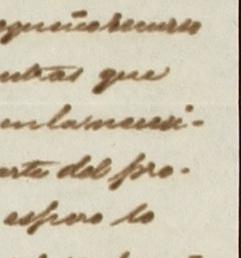 equeño recurso
entras que
en la necesi-
arte del pro-
espero lo